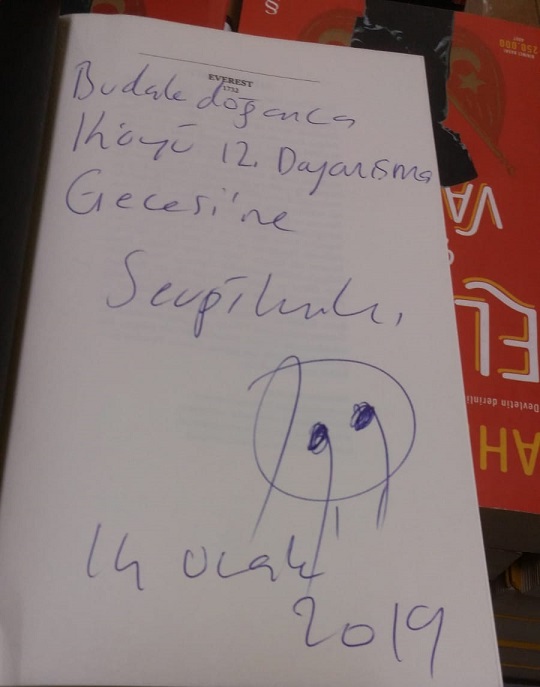 EVEREST
1732
Budak doğanca
Köyü 12. Dayanışma
Gecesi'ne
Sevgilerle,
14 Ocak
2019
250.000
VA
EL
Devletin derinli
AH